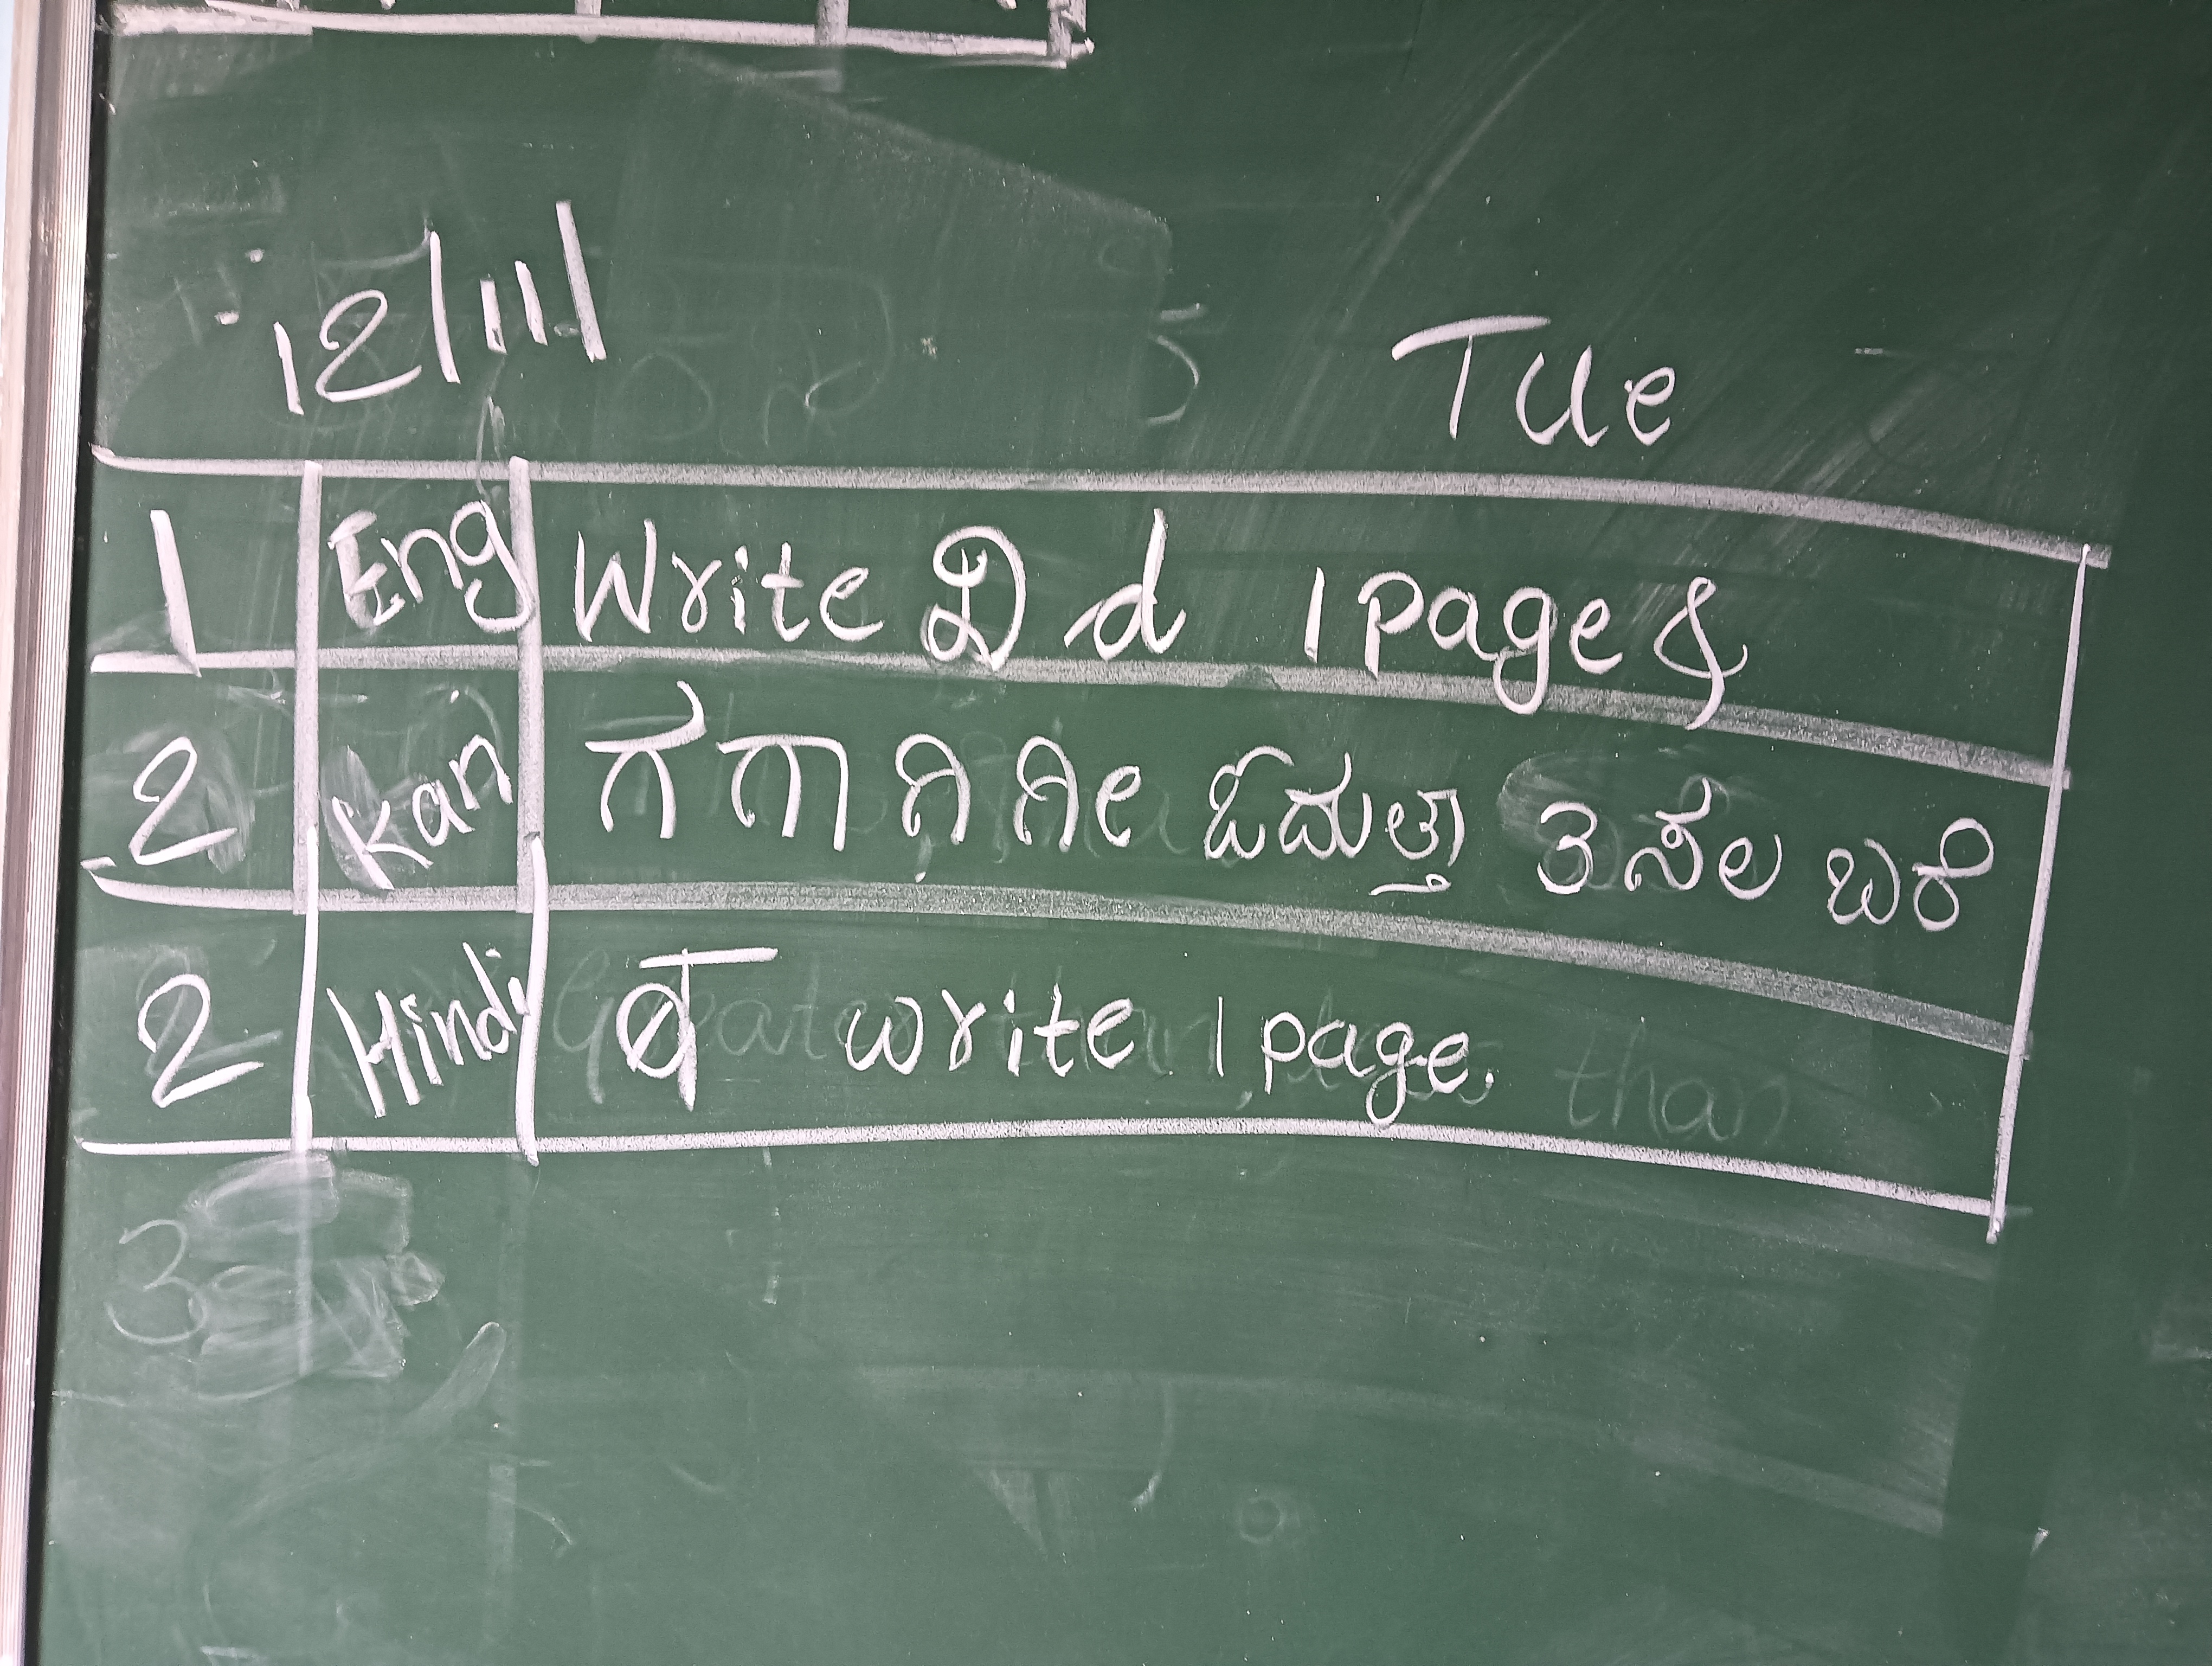 12/11/ Tue
1 Eng Write D d 1 page &
2 Kan ಗ ಗಾ ಗಿ ಗೀ ಓದುತ್ತಾ 3 ಸಲ ಬರೆ
2 Hindi व write 1 page.